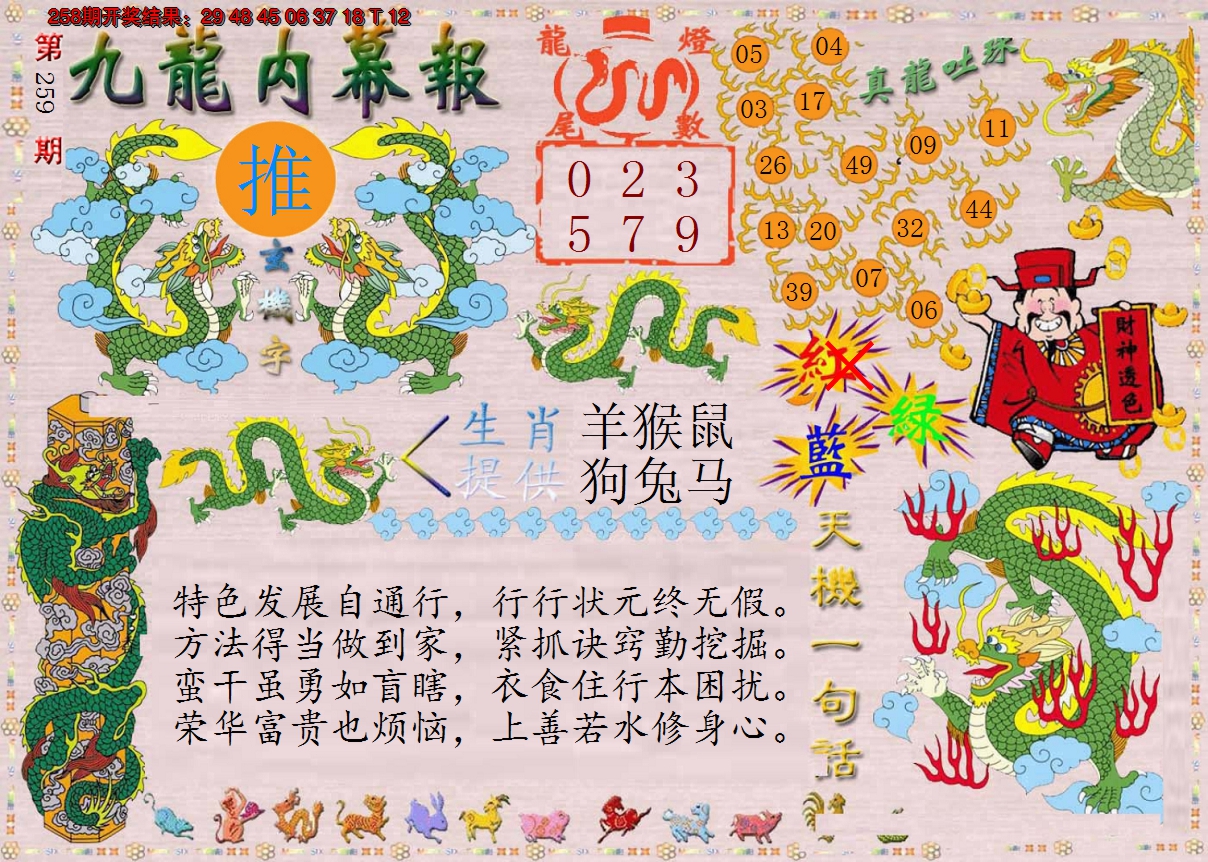 258期开奖结果：29 48 45 06 37 18 T 12
第259期
九龍内幕報
推
玄機字
龍燈
尾數
0 2 3
5 7 9
真龍吐珠
05
04
03
17
26
49
09
11
13
20
32
44
39
07
06
財神透色
紅
綠
藍
生肖
提供
羊猴鼠
狗兔马
天機一句话
特色发展自通行，行行状元终无假。
方法得当做到家，紧抓诀窍勤挖掘。
蛮干虽勇如盲瞎，衣食住行本困扰。
荣华富贵也烦恼，上善若水修身心。